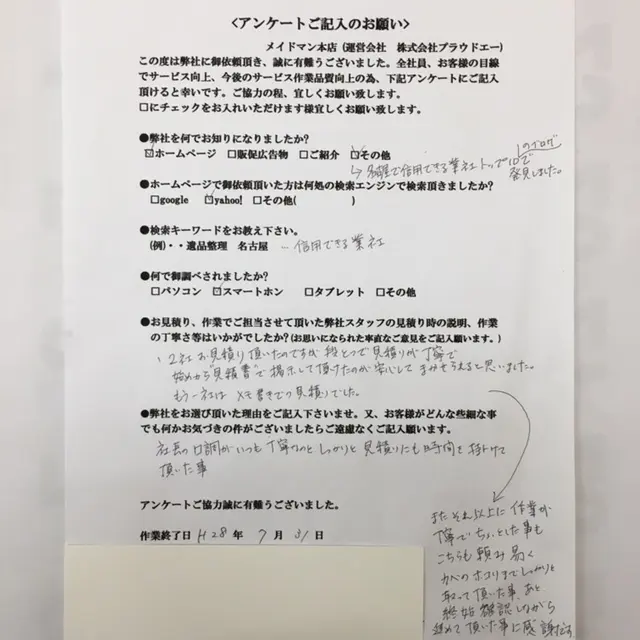 <アンケートご記入のお願い>
メイドマン本店 (運営会社　株式会社プラウドエー)
この度は弊社に御依頼頂き、誠に有難うございました。全社員、お客様の目線
でサービス向上、今後のサービス作業品質向上の為、下記アンケートにご記入
頂けると幸いです。ご協力の程、宜しくお願い致します。
□にチェックをお入れいただけます様宜しくお願い致します。
●弊社を何でお知りになりましたか?
☑ホームページ　□販促広告物　□ご紹介　☑その他
↳ 名古屋で信用できる業社トップ10で
のブログ
発見しました。
●ホームページで御依頼頂いた方は何処の検索エンジンで検索頂きましたか?
□google　☑yahoo!　□その他(　　　　　)
●検索キーワードをお教え下さい。
(例)・・遺品整理　名古屋　… 信用できる業社
●何で御調べされましたか?
□パソコン　☑スマートホン　□タブレット　□その他
●お見積り、作業でご担当させて頂いた弊社スタッフの見積り時の説明、作業
の丁寧さ等はいかがでしたか? (お思いになられた率直なご意見をご記入願います。)
2社お見積り頂いたのですが 段とつで見積りが丁寧で
始めから"見積書"で提示して頂けたのが安心してまかせらえると思いました。
もう一社は メモ書きでの見積りでした。
●弊社をお選び頂いた理由をご記入下さいませ。又、お客様がどんな些細な事
でも何かお気づきの件がございましたらご遠慮なくご記入願います。
社長の口調がいつも丁寧なのと しっかりと見積りにも時間を掛けて
頂いた事
アンケートご協力誠に有難うございました。
作業終了日 H28 年　7 月　31 日
またそれ以上に作業が
丁寧でちょっとした事も
こちらも頼み易く
カベのホコリまでしっかりと
取って頂いた事、あと
終始確認しながら
進めて頂いた事に感謝